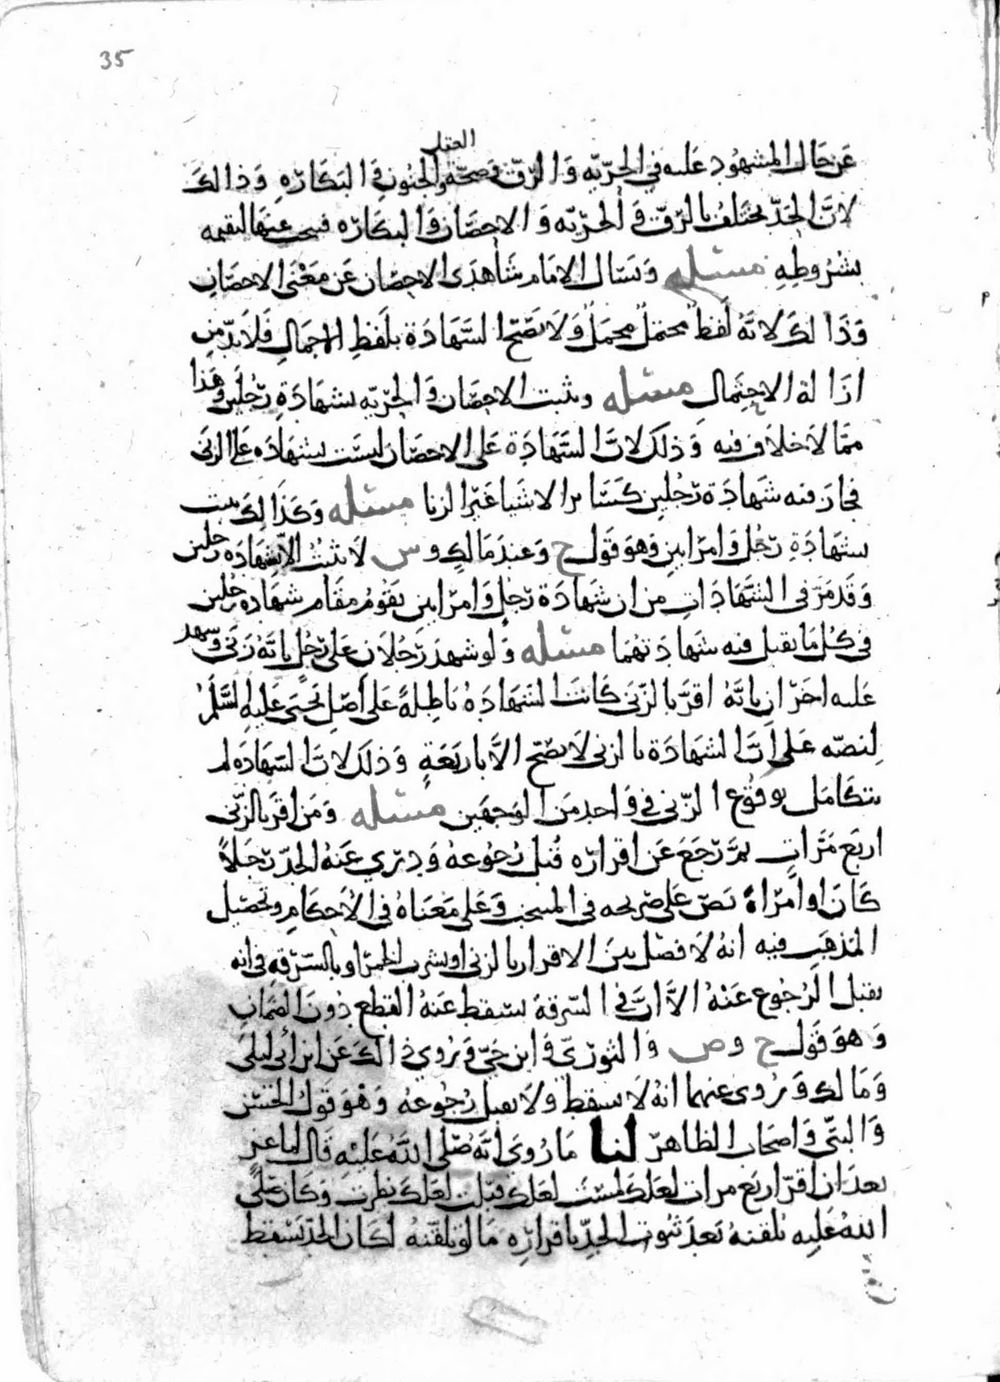 35
العقل
عن حال المشهود عليه في الحريه والرق وصحه والجنون والبكاره وذالك
لان الحد يختلف بالرق والحريه والاحصان والبكاره فيبحث عنها ليقيمه
بشروطه مسئله ويسال الامام شاهدى الاحصان عن معنى الاحصان
وذالك لانه لفظ محتمل مجمل ولا تصح الشهادة بلفظ الاجمال فلا بد من
ازالة الاحتمال مسئله ويثبت الاحصان والحريه بشهادة رجلين وهذا
مما لا خلاف فيه وذلك لان الشهادة على الاحصان ليست بشهاده على الزنى
فجاز فيه شهادة رجلين كسائر الاشيا غير الزنا مسئله وكذالك يثبت
بشهادة رجل وامراتين وهو قول ح وعند مالك وس لا يثبت الا بشهاده رجلين
وقد مر في الشهادات من ان شهادة رجل وامراتين يقوم مقام شهاده رجلين
في كل ما يقبل فيه شهادتهما مسئله ولو شهد رجلان على رجل بانه زنى وشهد
عليه اخران بانه اقر بالزنى كانت الشهاده باطلة على اصل يحيى عليه السلم
لنصه على ان الشهادة بالزنى لا يصح الا باربعة وذلك لان الشهاده لم
تتكامل بوقوع الزنى في واحد من الوجهين مسئله ومن اقر بالزنى
اربع مرات ثم رجع عن اقراره قبل رجوعه ودري عنه الحد رجلا
كان او امراة نص على صريحه في المنتخب وعلى معناه في الاحكام وتحصيل
المذهب فيه انه لا فصل بين الاقرار بالزنى او بشرب الخمر او بالسرقه في انه
يقبل الرجوع عنه الا ان في السرقة يسقط عنه القطع دون الضمان
وهو قول ح وص والثوري وابن حي وروي ذالك عن ابن أبي ليلى
ومالك وروى عنهما انه لا يسقط ولا يقبل رجوعه وهو قول الحسن
والبتي واصحاب الظاهر لنا ما روى انه صلى الله عليه قال لماعز
بعد ان اقر اربع مرات لعلك لمست لعلك قبلت لعلك نظرت وكان صلى
الله عليه يلقنه بعد ثبوت الحد باقراره ما لو تلقنه لكان الحد يسقط